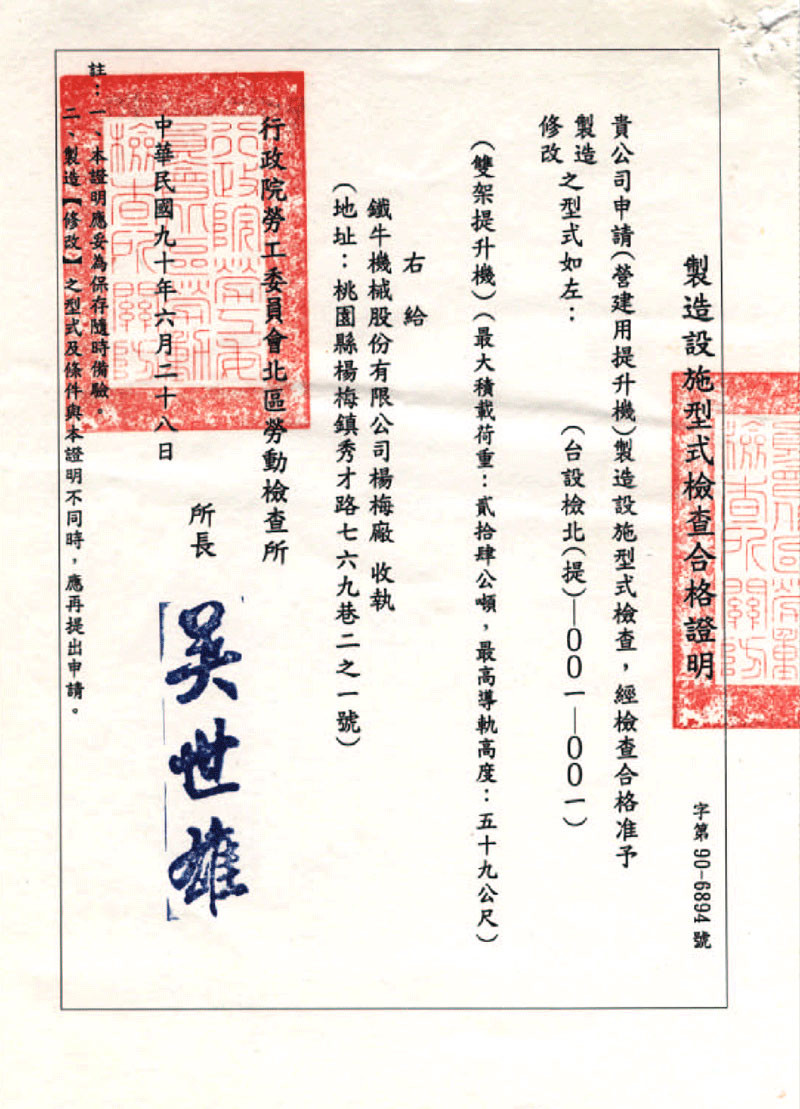 製造設施型式檢查合格證明
字第90-6894號
貴公司申請(營建用提升機)製造設施型式檢查，經檢查合格准予
製造
修改
之型式如左：
(台設檢北(提)—00一—00一)
(雙架提升機)(最大積載荷重：貳拾肆公噸，最高導軌高度：五十九公尺)
右給
鐵牛機械股份有限公司楊梅廠 收執
(地址：桃園縣楊梅鎮秀才路七六九巷二之一號)
行政院勞工委員會北區勞動檢查所
所長
吳世雄
中華民國九十年六月二十八日
註：一、本證明應妥為保存隨時備驗。
二、製造【修改】之型式及條件與本證明不同時，應再提出申請。